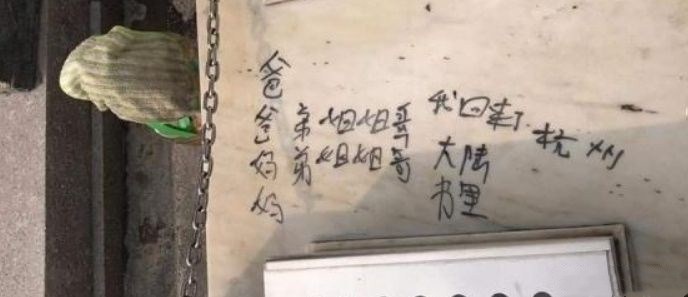 爸爸妈妈
弟弟
姐姐
姐姐
哥哥
我回来了
杭州
大陆
里